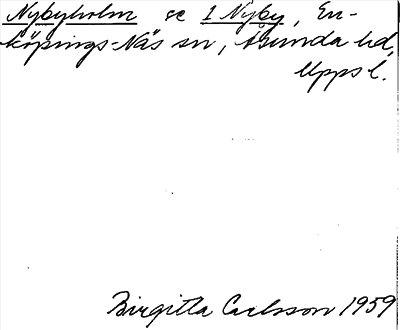 Nybyholm se 1 Nyby, En-
köpings-Näs sn, Åsunda hd,
Upps l.
Birgitta Carlsson 1959